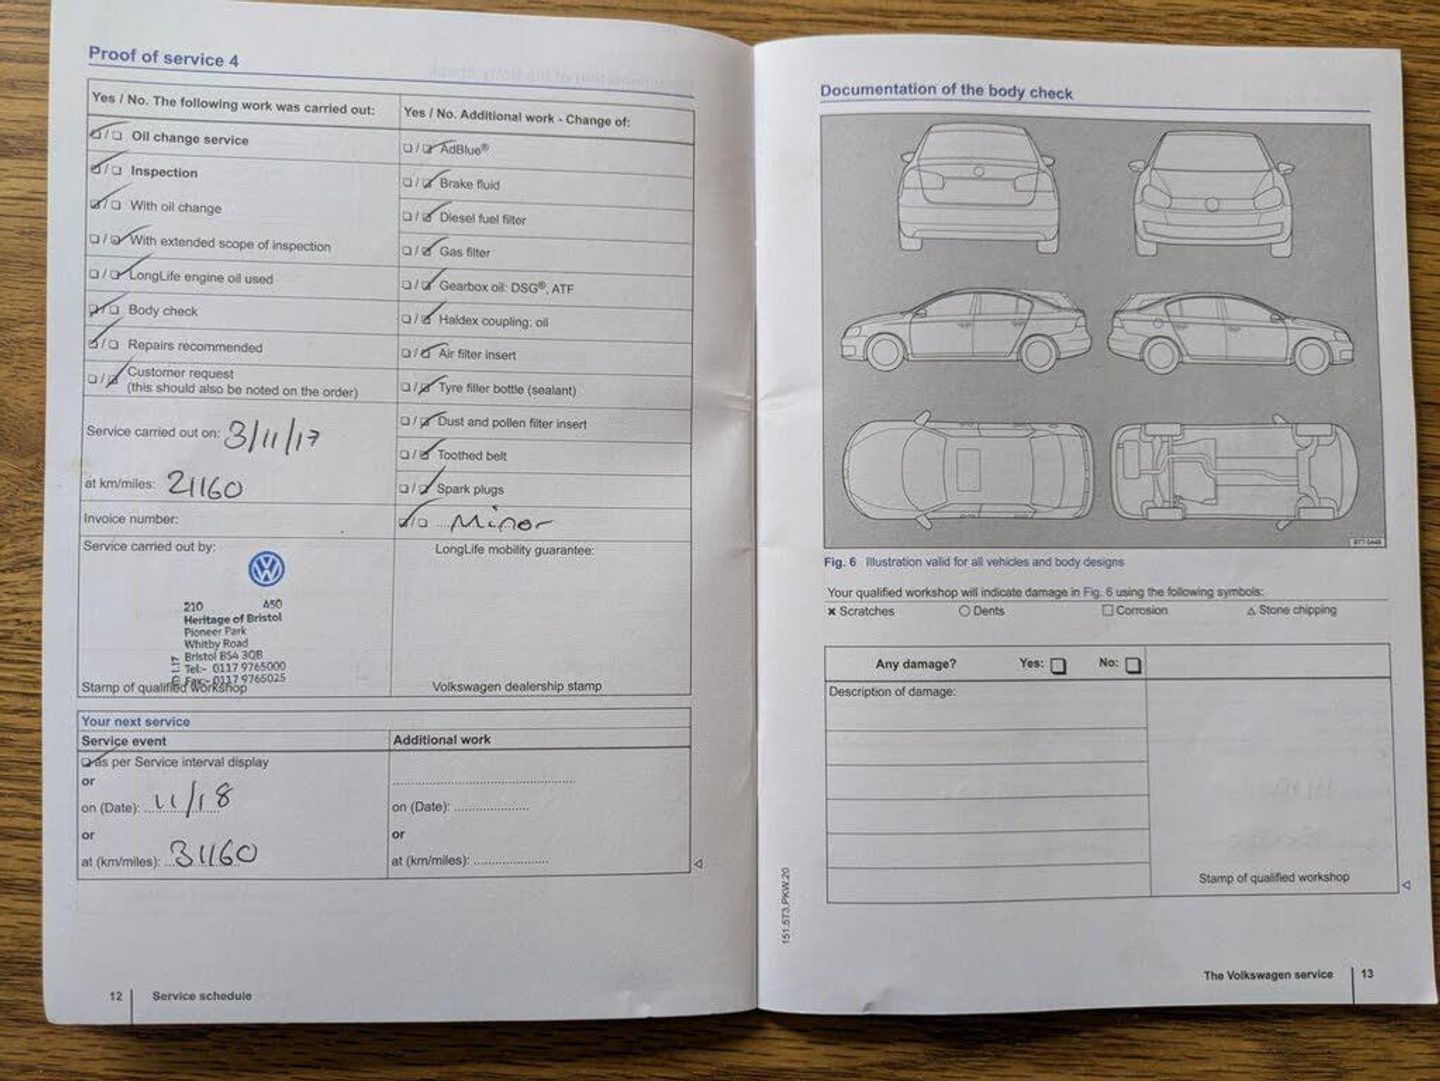 Proof of service 4
Yes / No. The following work was carried out:
Oil change service
Inspection
With oil change
With extended scope of inspection
LongLife engine oil used
Body check
Repairs recommended
Customer request
(this should also be noted on the order)
Service carried out on: 3/11/17
at km/miles: 21160
Invoice number:
Service carried out by:
210 450
Heritage of Bristol
Pioneer Park
Whitby Road
Bristol BS4 3QB
Tel:- 0117 9765000
Fax:- 0117 9765025
Stamp of qualified workshop
Yes / No. Additional work - Change of:
AdBlue®
Brake fluid
Diesel fuel filter
Gas filter
Gearbox oil: DSG®, ATF
Haldex coupling: oil
Air filter insert
Tyre filler bottle (sealant)
Dust and pollen filter insert
Toothed belt
Spark plugs
Minor
LongLife mobility guarantee:
Volkswagen dealership stamp
Your next service
Service event
as per Service interval display
or
on (Date): 11/18
or
at (km/miles): 31160
Additional work
on (Date):
or
at (km/miles):
12 Service schedule
Documentation of the body check
Fig. 6 Illustration valid for all vehicles and body designs
Your qualified workshop will indicate damage in Fig. 6 using the following symbols:
× Scratches ○ Dents □ Corrosion △ Stone chipping
Any damage? Yes: □ No: □
Description of damage:
Stamp of qualified workshop
151.5T3.PKW.20
The Volkswagen service 13